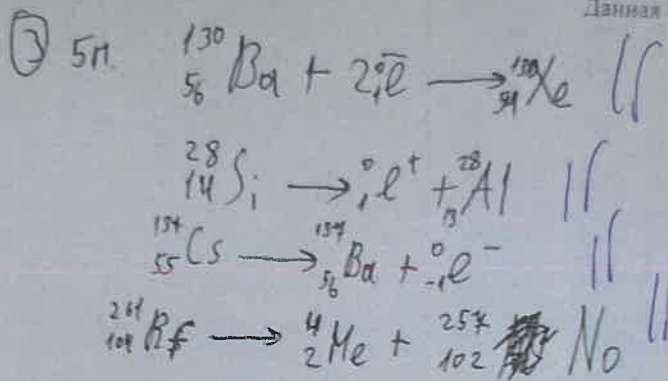 Данная
③ 5п. ¹³⁰₅₆Ba + 2⁰₋₁e̅ ⟶ ¹³⁰₅₄Xe
²⁸₁₄Si ⟶ ⁰₁e⁺ + ²⁸₁₃Al
¹³⁷₅₅Cs ⟶ ¹³⁷₅₆Ba + ⁰₋₁e⁻
²⁶¹₁₀₄Rf ⟶ ⁴₂He + ²⁵⁷₁₀₂ No